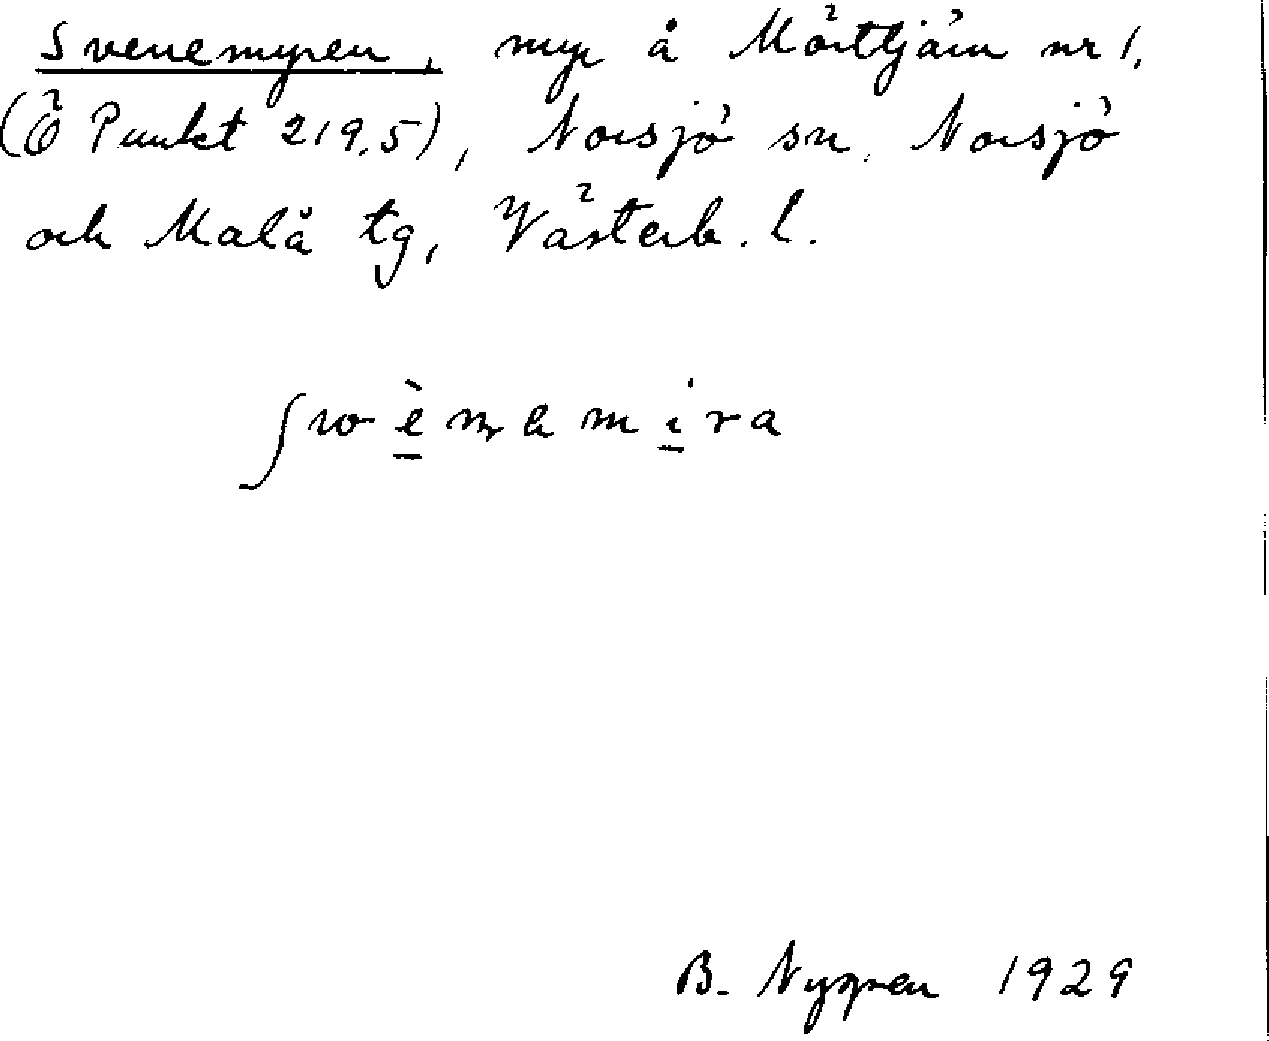 Svenemyren, myr å Mörttjärn nr 1.
(Ö Punkt 219,5), Norsjö sn. Norsjö
och Malå tg, Västerb. l.
B. Nygren 1929